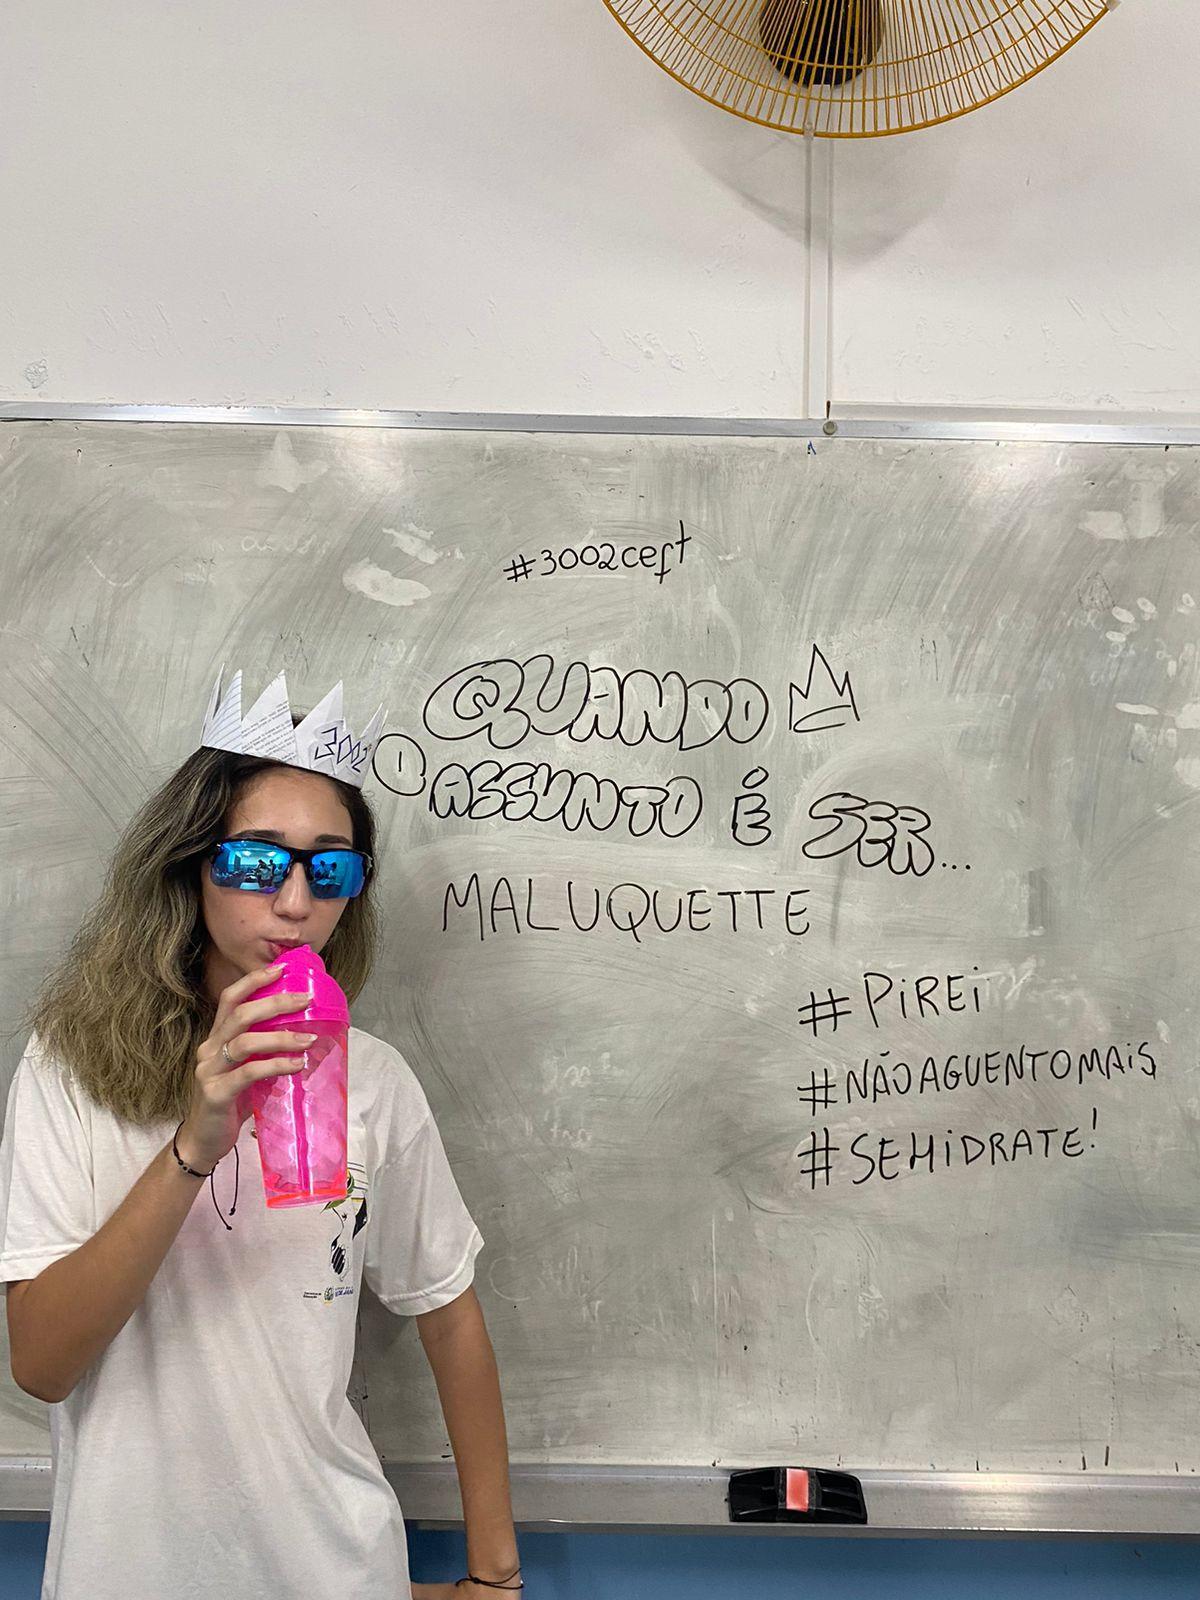 #3002ceft
QUANDO
O ASSUNTO É SER...
MALUQUETTE
#PiREi
#NÃOAGUENTOMAiS
#SEHiDRATE!
3002